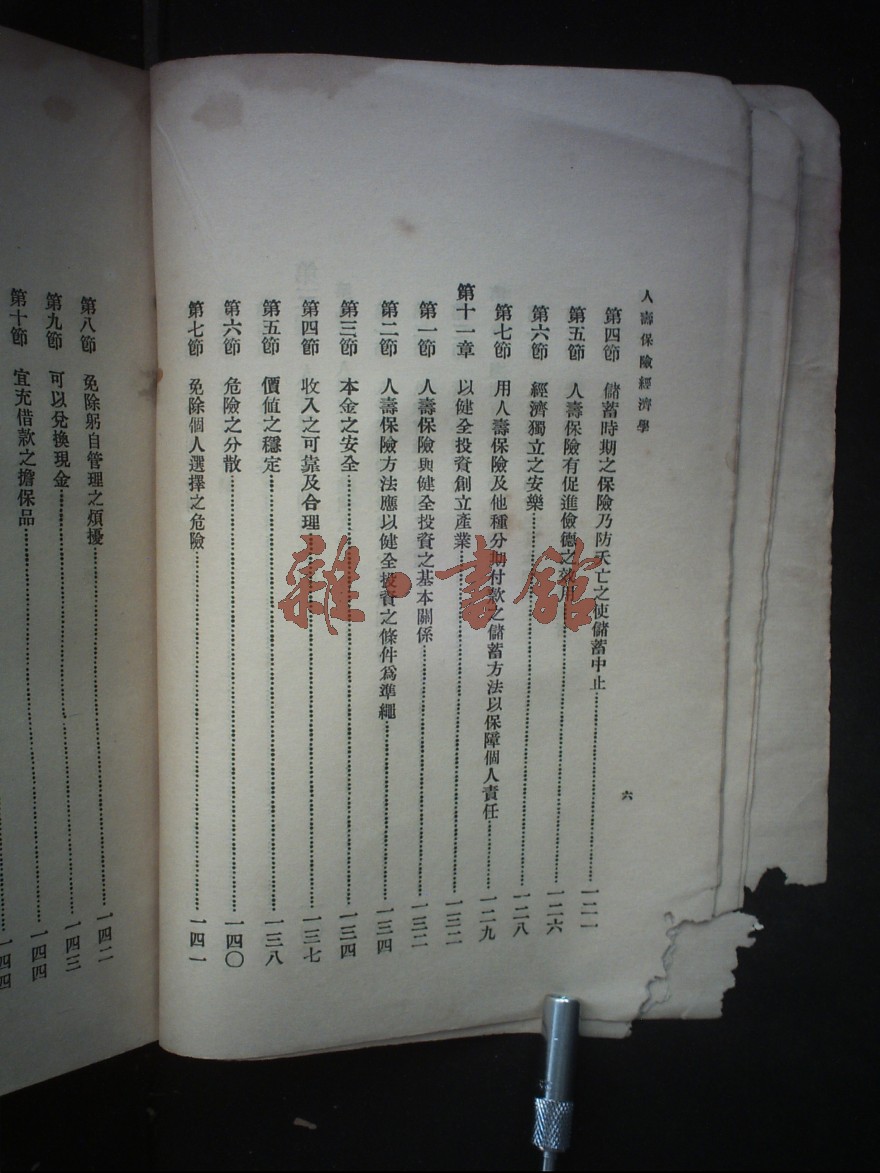 人壽保險經濟學
第四節 儲蓄時期之保險乃防夭亡之使儲蓄中止……一二一
第五節 人壽保險有促進儉德之效用……一二六
第六節 經濟獨立之安樂……一二八
第七節 用人壽保險及他種分期付款之儲蓄方法以保障個人責任……一二九
第十一章 以健全投資創立產業……一三二
第一節 人壽保險與健全投資之基本關係……一三二
第二節 人壽保險方法應以健全投資之條件爲準繩……一三四
第三節 本金之安全……一三四
第四節 收入之可靠及合理……一三七
第五節 價值之穩定……一三八
第六節 危險之分散……一四〇
第七節 免除個人選擇之危險……一四一
六
第八節 免除躬自管理之煩擾……一四二
第九節 可以兌換現金……一四三
第十節 宜充借款之擔保品……一四四
一四四
雜·書館